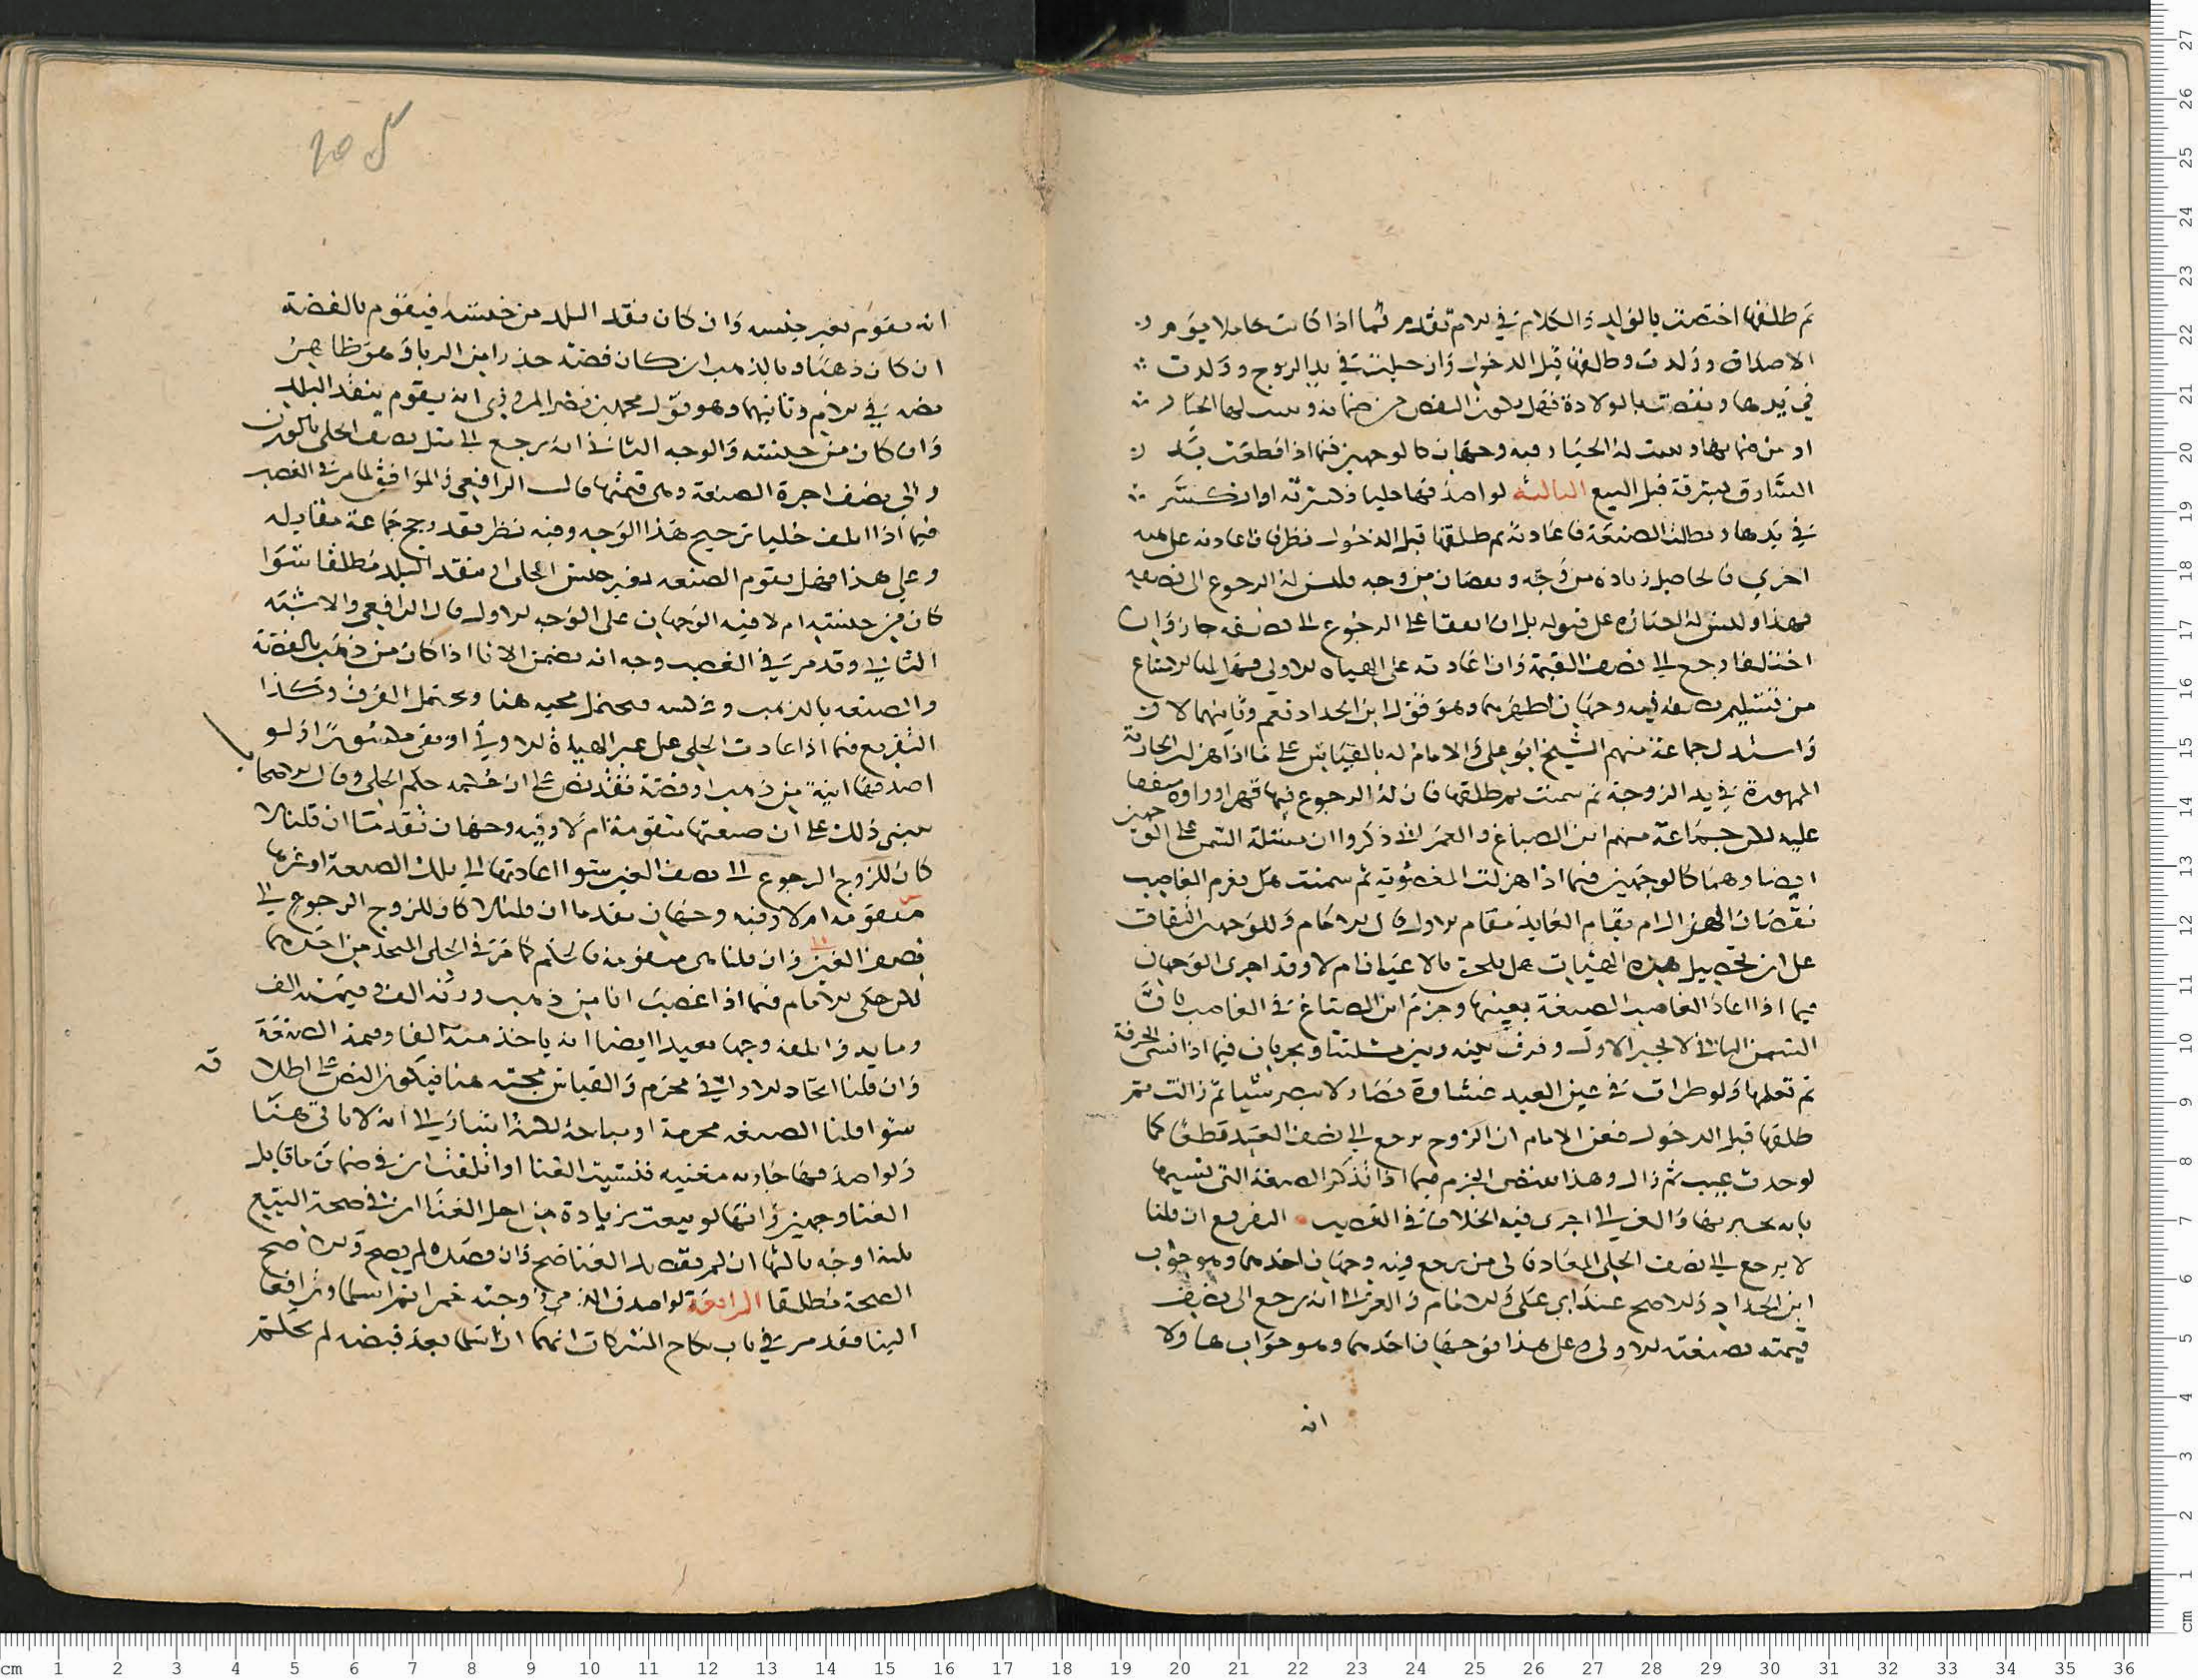 ثم طلقها اختصت بالولد والكلام في الام تقدم ثما اذا كانت حاملا يوم
الاصداق وولدت وطلقها قبل الدخول وان حبلت في يد الزوج وولدت
في يدها ونقصت بالولادة فهل يكون النقص من ضمانه ويثبت لها الخيار
او من ضمانها ويثبت له الخيار فيه وجهان كالوجهين فيما اذا قطعت يد
السارق بسرقة قبل البيع الثالثة لو اصدقها حليا فكسرته او انكسر
في يدها وبطلت الصنعة فاعادته ثم طلقها قبل الدخول نظر فان اعادته على هيه
اخرى فالحاصل زيادة من وجه ونقصان من وجه فليس له الرجوع الى نصفه
فهذا وليس له اجباره على قبوله بل ان اتفقا على الرجوع الى نصفه جاز وان
اختلفا رجع الى نصف القيمة وان اعادته على الهياه الاولى فهل لها الامتناع
من تسليم نصفه فيه وجهان اظهرهما وهو قول ابن الحداد نعم وثانيهما لا
واستدل جماعة منهم الشيخ ابو علي والامام له بالقياس على ما اذا هزلت الجارية
الممهورة في يد الزوجة ثم سمنت ثم طلقها فان له الرجوع فيها قهرا
عليه لكن جماعة منهم ابن الصباغ و ذكروا ان مسئلة السمن على
ايضا وهما كالوجهين فيما اذا هزلت المغصوبة ثم سمنت هل يغرم الغاصب
نقصان الهزال ام يقام العايد مقام الاول قال الامام وللوجهين التفات
على ان تحصيل هذه الهيات هل يلحق بالاعيان ام لا وقد اجرى الوجهان
فيما اذا اعاد الغاصب الصنعة بعينها وجزم ابن الصباغ في الغاصب بان
السمن الثاني لا يجبر الاول وفرق بينه وبين مسئلتنا ويجريان فيما اذا نسي الحرفة
ثم تعلمها ولو طرات في عين العبد غشاوة فصار لا يبصر شيا ثم زالت ثم
طلقها قبل الدخول فعن الامام ان الزوج يرجع الى نصف العبد قطعا كما
لو حدث عيب ثم زال وهذا يقتضي الجزم فيما اذا تذكر الصنعة التي نسيها
بانه يجبر بها والغزالي اجرى فيه الخلاف في الغصب التفريع ان قلنا
لا يرجع الى نصف الحلي المعاد فالى من يرجع فيه وجهان احدهما وهو جواب
ابن الحداد والاصح عند ابي علي والامام والغزالي انه يرجع الى نصف
قيمته بصنعته الاولى وعلى هذا فوجهان احدهما وهو جوابها ولا
انه
انه يقوم بغير جنسه وان كان نقد البلد من جنسه فيقوم بالفضة
ان كان ذهبا وبالذهب ان كان فضة حذرا من الربا وهو ظاهر
نصه في الام وثانيهما وهو قول محمد بن نصر المروزي انه يقوم بنقد البلد
وان كان من جنسه والوجه الثاني انه يرجع الى مثل نصف الحلي بالوزن
والى نصف اجرة الصنعة وهي قيمتها قال الرافعي والموافق لما مر في الغصب
فيما اذا اتلف حليا ترجيح هذا الوجه وفيه نظر فقد رجح جماعة مقابله
وعلى هذا فهل يقوم الصنعه بغير جنس الحلي او بنقد البلد مطلقا سوا
كان من جنسه ام لا فيه الوجهان على الوجه الاول قال الرافعي والاشبه
الثاني وقد مر في الغصب وجه انه يضمن الانا اذا كان من ذهب بالفضة
والصنعه بالذهب وعكسه فيحتمل مجيه هنا ويحتمل الفرق وكذا
التفريع فيما اذا اعادت الحلي على غير الهياة الاولى او بقي مكسورا ولو
اصدقها انية من ذهب او فضة فقد نص على ان حكمه حكم الحلي وقال الاصحاب
يبنى ذلك على ان صنعتها متقومة ام لا وفيه وجهان تقدمتا ان قلنا لا
كان للزوج الرجوع الى نصف العين سوا اعادتها الى تلك الصنعة او غيرها
متقومه ام لا وفيه وجهان تقدما ان قلنا لا كان للزوج الرجوع الى
نصف العين وان قلنا هي متقومة فالحكم كما مر في الحلي المتخذ من احدهما
لكن حكى الامام فيما اذا غصب انا من ذهب وزنه الف وقيمته الف
ومايه فاتلفه وجها بعيدا ايضا انه ياخذ منه الفا وقيمة الصنعة
وان قلنا اتخاذ الاواني محرم والقياس مجيه هنا فيكون النص على اطلاقه
سوا قلنا الصنعه محرمة او مباحة لكنه اشار الى انه لا ياتي هنا
ولو اصدقها جارية مغنيه فنسيت الغنا او اتلفت ان في ضمان ما قابل
الغنا وجهين وانها لو بيعت بزيادة من اجل الغنا ان في صحة البيع
ثلثة اوجه ثالثها ان لم يقصد الغنا صح وان قصده لم يصح والاصح
الصحة مطلقا الرابعة لو اصدق الذمي زوجته خمرا ثم اسلما وترافعا
الينا فقد مر في باب نكاح المشركات انهما ان اسلما بعد قبضه لم نحكم